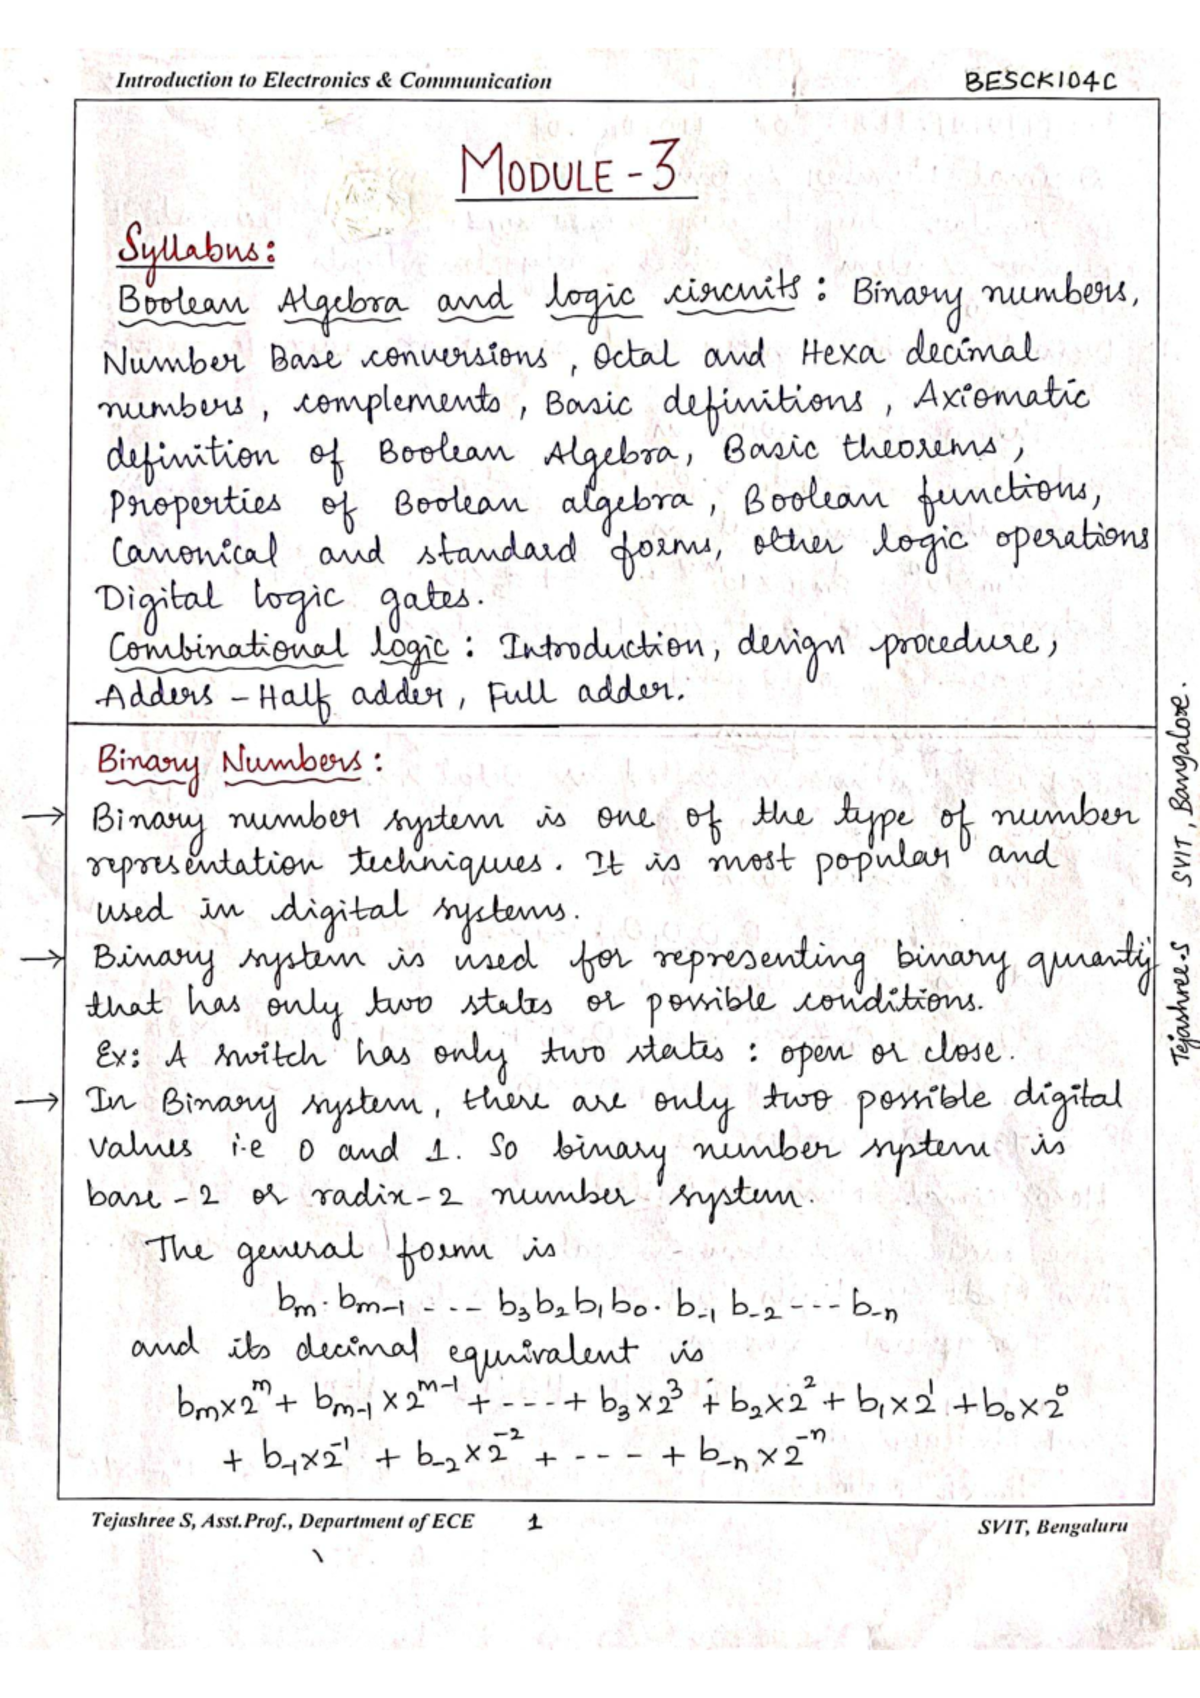 Introduction to Electronics & Communication BESCK104C
MODULE-3
Syllabus:
Boolean Algebra and logic circuits: Binary numbers,
Number Base conversions, Octal and Hexa decimal
numbers, complements, Basic definitions, Axiomatic
definition of Boolean Algebra, Basic theorems,
Properties of Boolean algebra, Boolean functions,
Canonical and standard forms, other logic operations
Digital logic gates.
Combinational logic: Introduction, design procedure,
Adders - Half adder, Full adder.
Binary Numbers:
→ Binary number system is one of the type of number
representation techniques. It is most popular and
used in digital systems.
→ Binary system is used for representing binary quantity
that has only two states or possible conditions.
Ex: A switch has only two states: open or close.
→ In Binary system, there are only two possible digital
values i.e 0 and 1. So binary number system is
base-2 or radix-2 number system.
The general form is
bₘ. bₘ₋₁ ---- b₃b₂b₁b₀. b₋₁ b₋₂ --- b₋ₙ
and its decimal equivalent is
bₘx2ᵐ + bₘ₋₁ x 2ᵐ⁻¹ + --- + b₃x2³ + b₂x2² + b₁x2¹ + b₀x2⁰
+ b₋₁x2⁻¹ + b₋₂x2⁻² + ---- + b₋ₙ x 2⁻ⁿ
Tejashree S SVIT, Bangalore.
Tejashree S, Asst.Prof., Department of ECE 1 SVIT, Bengaluru